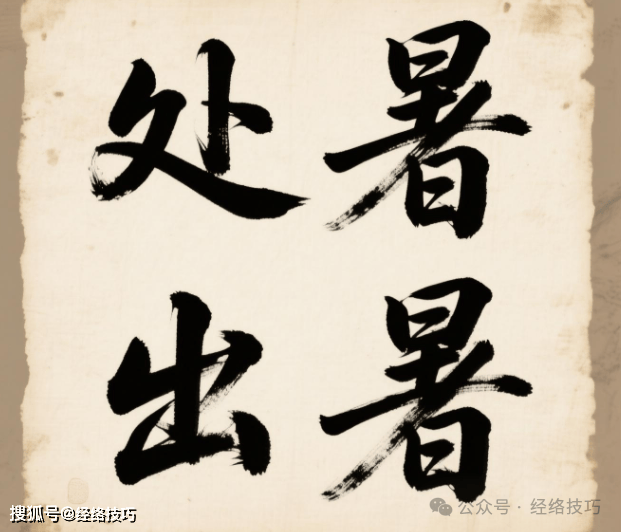 处暑
出暑
搜狐号@经络技巧
公众号 · 经络技巧